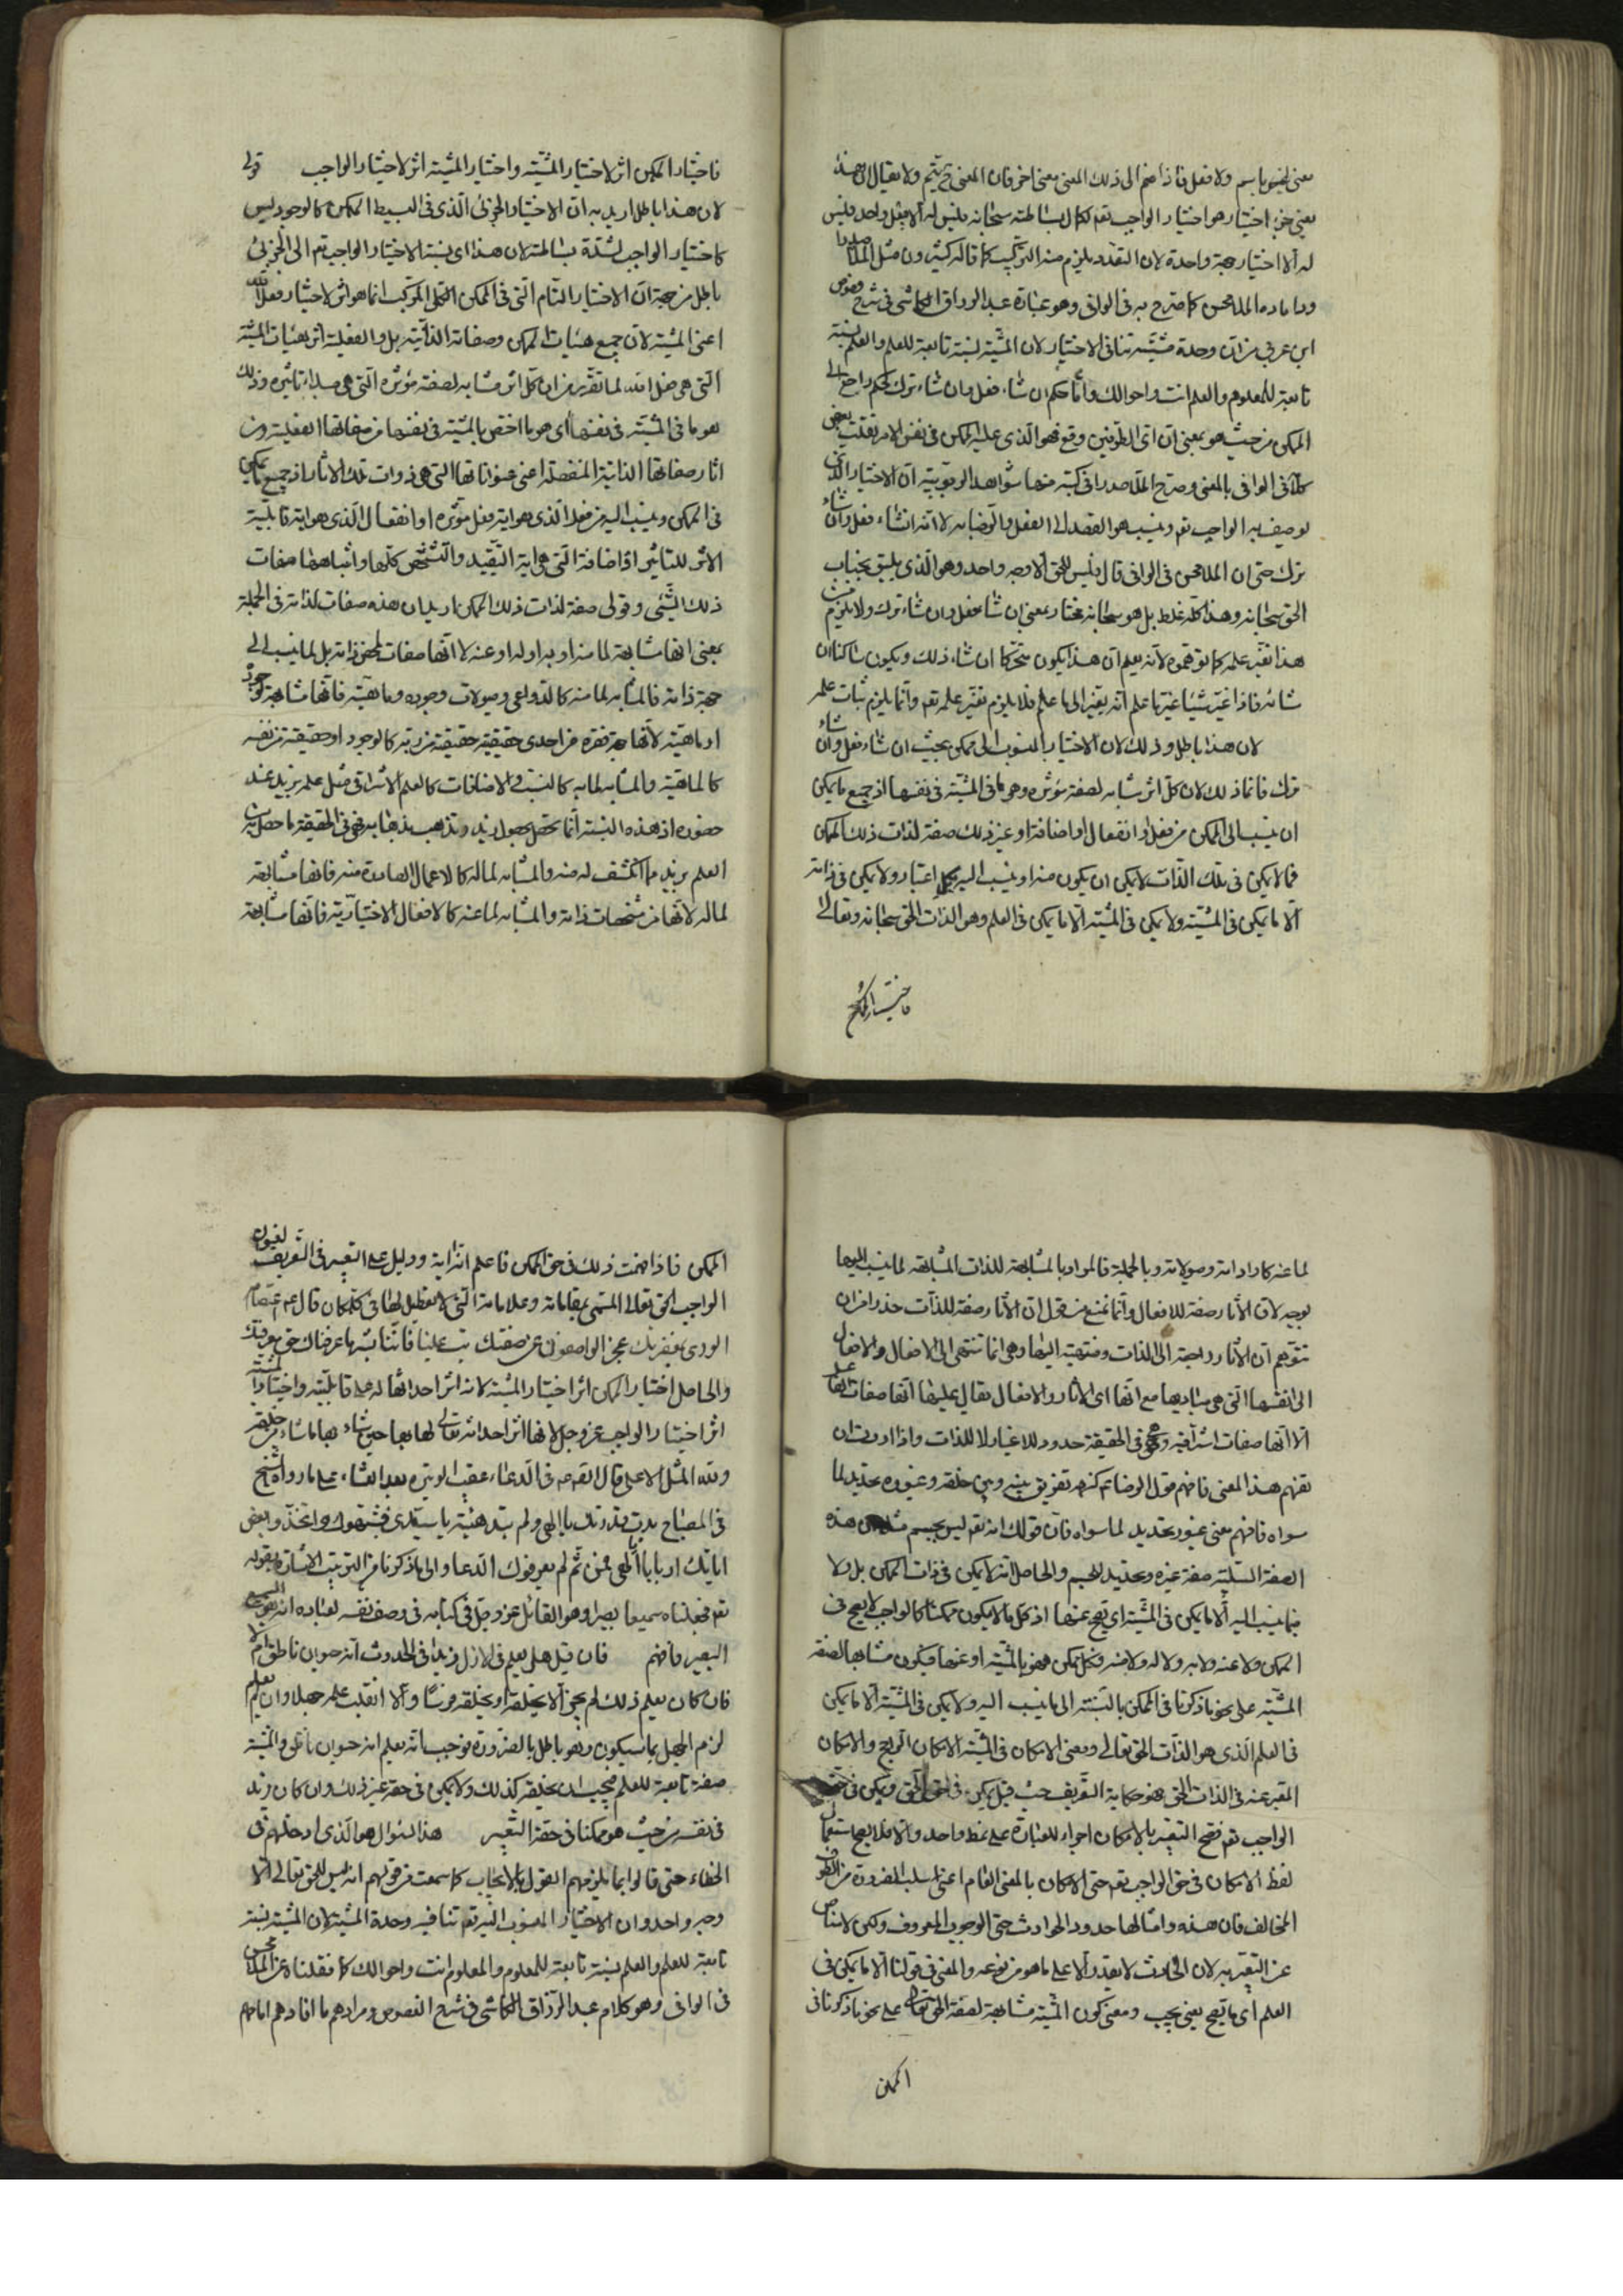 معنی لیس باسم ولا فعل فاذا ضم الی ذلک المعنی معنی اخر فان المعنی ح یتم ولا یقال ان هذا
یعنی جزء اختیار هو اختیار الواجب تعم لکمال بساطته سبحانه فلیس له الا فعل واحد ولیس
له الا اختیار جهة واحدة لان التعدد یلزم منه الترکیب کما قاله کثیرون مثل الملا صدرا
وداماده الملا محسن کما صرح به فی الوافی وهو عبارة عبد الرزاق الکاشی فی شرح فصوص
ابن عربی من ان وحدة مشیته تنافی الاختیار لان المشیة نسبة تابعة للعلم والعلم نسبة
تابعة للمعلوم والمعلوم انت واحوالک واما حکم ان شاء فعل وان شاء ترک فحکم راجع الی
الممکن من حیث هو بمعنی ان ای الطرفین وقع فهو الذی علیه الممکن فی نفس الامر نقلت بعض
کلام الوافی بالمعنی وصرح الملا صدرا فی کتبه منها شواهد الربوبیة ان الاختیار الذی
یوصف به الواجب تعم وینسب هو القصد الی الفعل والرضا به لا انه ان شاء فعل وان شاء
ترک حتی ان الملا محسن فی الوافی قال فلیس للحق الا وجه واحد وهو الذی یلیق بجناب
الحق سبحانه وهذا کله غلط بل هو سبحانه مختار بمعنی ان شاء فعل وان شاء ترک ولا یلزم من
هذا تغیر علمه کما توهموه لانه یعلم ان هذا یکون متحرکا ان شاء ذلک ویکون ساکنا ان
شاء فاذا غیر شیئا غیر ما علم انه یغیر الی ما علم فلا یلزم تغیر علمه تعم وانما یلزم ثبات علمه
لان هذا باطل وذلک لان الاختیار المنسوب الی ممکن بحیث ان شاء فعل وان شاء
ترک فانما ذلک لان کل اثر یشابه لصفة مؤثره وهو ما فی المشیة فی نفسها اذ جمیع ما یمکن
ان ینسب الی الممکن من فعل او انفعال او اضافة او غیر ذلک صفة لذات ذلک الممکن
فما لا یمکن فی تلک الذات لا یمکن ان یکون منه او ینسب الیه بکل اعتبار ولا یمکن فی ذاته
الا ما یمکن فی المشیة ولا یمکن فی المشیة الا ما یمکن فی العلم وهو الذات الحق سبحانه وتعالی
فاختیار الممکن
فاختیار الممکن اثر لاختیار المشیة واختیار المشیة اثر لاختیار الواجب قولی
لان هذا باطل ارید به ان الاختیار الجزئی الذی فی البسیط الممکن کالوجود لیس
کاختیار الواجب لشدة بساطته لان هذا ای نسبة الاختیار الواجب تعم الی الجزئی
باطل من جهة ان الاختیار التام التی فی الممکن الکلی المرکب انما هو اثر لاختیار فعل الله
اعنی المشیة لان جمیع هیئات الممکن وصفاته الذاتیة بل والفعلیة اثر لهیئات المشیة
التی هی فعل الله لما تقرر من ان کل اثر مشابه لصفة مؤثره التی هی مبداء تاثیره وذلک
هو ما فی المشیة فی نفسها ای هو ما اختص بالمشیة فی نفسها من صفاتها الفعلیة ومن
اثار صفاتها الذاتیة المنفصلة اعنی عنواناتها التی هی ذوات تلک الاثار اذ جمیع ما یمکن
فی الممکن وینسب الیه من فعل الذی هو ایة فعل مؤثره او انفعال الذی هو ایة قابلیة
الاثر للتاثیر او اضافة التی هی ایة التقیید والتشخص کلها واشباهها صفات
ذلک الشیء وقولی صفة لذات ذلک الممکن ارید ان هذه صفات لذاته فی الجملة
بمعنی انها مشابهة لما منه او به او له او عنه لا انها صفات لمحض ذاته بل لما ینسب الی
جهة ذاته فالمشابه لما منه کالدواعی ومیولات وجوده وماهیته فانها مشابهة لوجوده
او ماهیته لانها جهة فقره من احدی حقیقتیه حقیقة من ربه کالوجود او حقیقة من نفسه
کالماهیة والمشابه لما به کالنسب والاضافات کالعلم الاشراقی مثل علم بزید عند
حضوره اذ هذه النسبة انما تحصل بحصول زید وتذهب بذهابه فهی فی الحقیقة ما حصل به
العلم بزید ما انکشف له منه والمشابه لما له کالاعمال الصادرة منه فانها مشابهة
لما له لانها من مشخصات ذاته والمشابه لما عنه کالافعال الاختیاریة فانها مشابهة
لما عنه کاراداته ومیولاته وبالجملة فالمراد بالمشابهة للذات المشابهة لما ینسب الیها
بوجه لان الاثار صفة للافعال وانما نمنع من قول ان الاثار صفة للذات حذرا من ان
تتوهم ان الاثار راجعة الی الذات ومنتهیة الیها وهی انما تنتهی الی الافعال والافعال
الی انفسها التی هی مبادیها مع انها ای الاثار والافعال یقال علیها انها صفات لها
الا انها صفات اشراقیة وهی فی الحقیقة حدود للاغیار لا للذات واذا اردت ان
تفهم هذا المعنی فافهم قول الرضا ع کنهه تفریق بینه وبین خلقه وغیوره تحدید لما
سواه فافهم معنی غیوره تحدید لما سواه فان قولک انه تعم لیس بجسم هذه
الصفة السلبیة صفة غیره وتحدید للجسم والحاصل انه لا یمکن فی ذات الممکن بل ولا
فیما ینسب الیه الا ما یمکن فی المشیة ای یصح عنها اذ کل ما لا یکون ممکنا کالواجب لا یصح فی
الممکن ولا عنه ولا به ولا له ولا منه وکل ممکن فهو بالمشیة او عنها فیکون مشابها لصفة
المشیة علی نحو ما ذکرنا فی الممکن بالنسبة الی ما ینسب الیه ولا یمکن فی المشیة الا ما یمکن
فی العلم الذی هو الذات الحق تعالی ومعنی الامکان فی المشیة الامکان الراجح والامکان
المعبر عنه فی الذات الحق هو حکایة التعریف حیث قیل یمکن فی الحق ویمکن فی حق
الواجب تعم فصح التعبیر بالامکان اجراء للعبارة علی نمط واحد والا فلا یصح استعمال
لفظ الامکان فی حق الواجب تعم حتی الامکان بالمعنی العام اعنی سلب الضرورة من الطرف
المخالف فان هذه وامثالها حدود الحوادث حتی الوجوب المعروف ولکن لا مناص
عن التعبیر به لان الحادث لا یقدر الا علی ما هو من نوعه والمعنی فی قولنا الا ما یمکن فی
العلم ای ما یصح یعنی یجب ومعنی کون المشیة مشابهة لصفة الحق تعالی علی نحو ما ذکرنا فی
الممکن
الممکن فاذا فهمت ذلک فی حق الممکن فاعلم انه ایة ودلیل علی التعبیر فی التعریف لعنوان
الواجب الحق تعالی المسمی بمقاماته وعلاماته التی لا تعطیل لها فی کل مکان قال ع
الوری بمغفرتک عجز الواصفون عن صفتک تب علینا فاننا بشر ما عرفناک حق معرفتک
والحاصل اختیار الممکن اثر اختیار المشیة لانه اثر احداثها له علی قابلیته واختیار المشیة
اثر اختیار الواجب عز وجل لانها اثر احداثه تعالی لها بها حین شاء بها ما شاء من خلقه
ولله المثل الاعلی قال ع فی الدعاء عقیب الوتیرة بعد العشاء علی ما رواه الشیخ
فی المصباح بدت قدرتک یا الهی ولم تبد هیئة یا سیدی فشبهوک واتخذوا بعض
ایاتک اربابا یا الهی فمن ثم لم یعرفوک الدعا والی ما ذکرنا من الترتیب الاشارة بقوله
تعم فجعلناه سمیعا بصیرا وهو القائل عز وجل فی کتابه فی وصف نفسه لعباده انه هو السمیع
البصیر فافهم فان قیل هل یعلم فی الازل زیدا فی الحدوث انه حیوان ناطق ام لا
فان کان یعلم ذلک لم یجز الا یخلقه او یخلقه فرسا والا انقلب علمه جهلا وان لم یعلم
لزم الجهل بما سیکون وهو باطل بالضرورة فوجب انه یعلم انه حیوان ناطق والمشیة
صفة تابعة للعلم فیجب ان یخلقه کذلک ولا یمکن فی حقه غیر ذلک وان کان زید
فی نفسه من حیث هو ممکنا فی حقه التغییر هذا السؤال هو الذی ادخلهم فی
الخطاء حتی قالوا بما یلزمهم القول بالایجاب کما سمعت من قولهم انه لیس للحق تعالی الا
وجه واحد وان الاختیار المنسوب الیه تعم تنافیه وحدة المشیة لان المشیة نسبة
تابعة للعلم والعلم نسبة تابعة للمعلوم والمعلوم انت واحوالک کما نقلناه عن الملا محسن
فی الوافی وهو کلام عبد الرزاق الکاشی فی شرح الفصوص ومرادهم ما افادهم امامهم